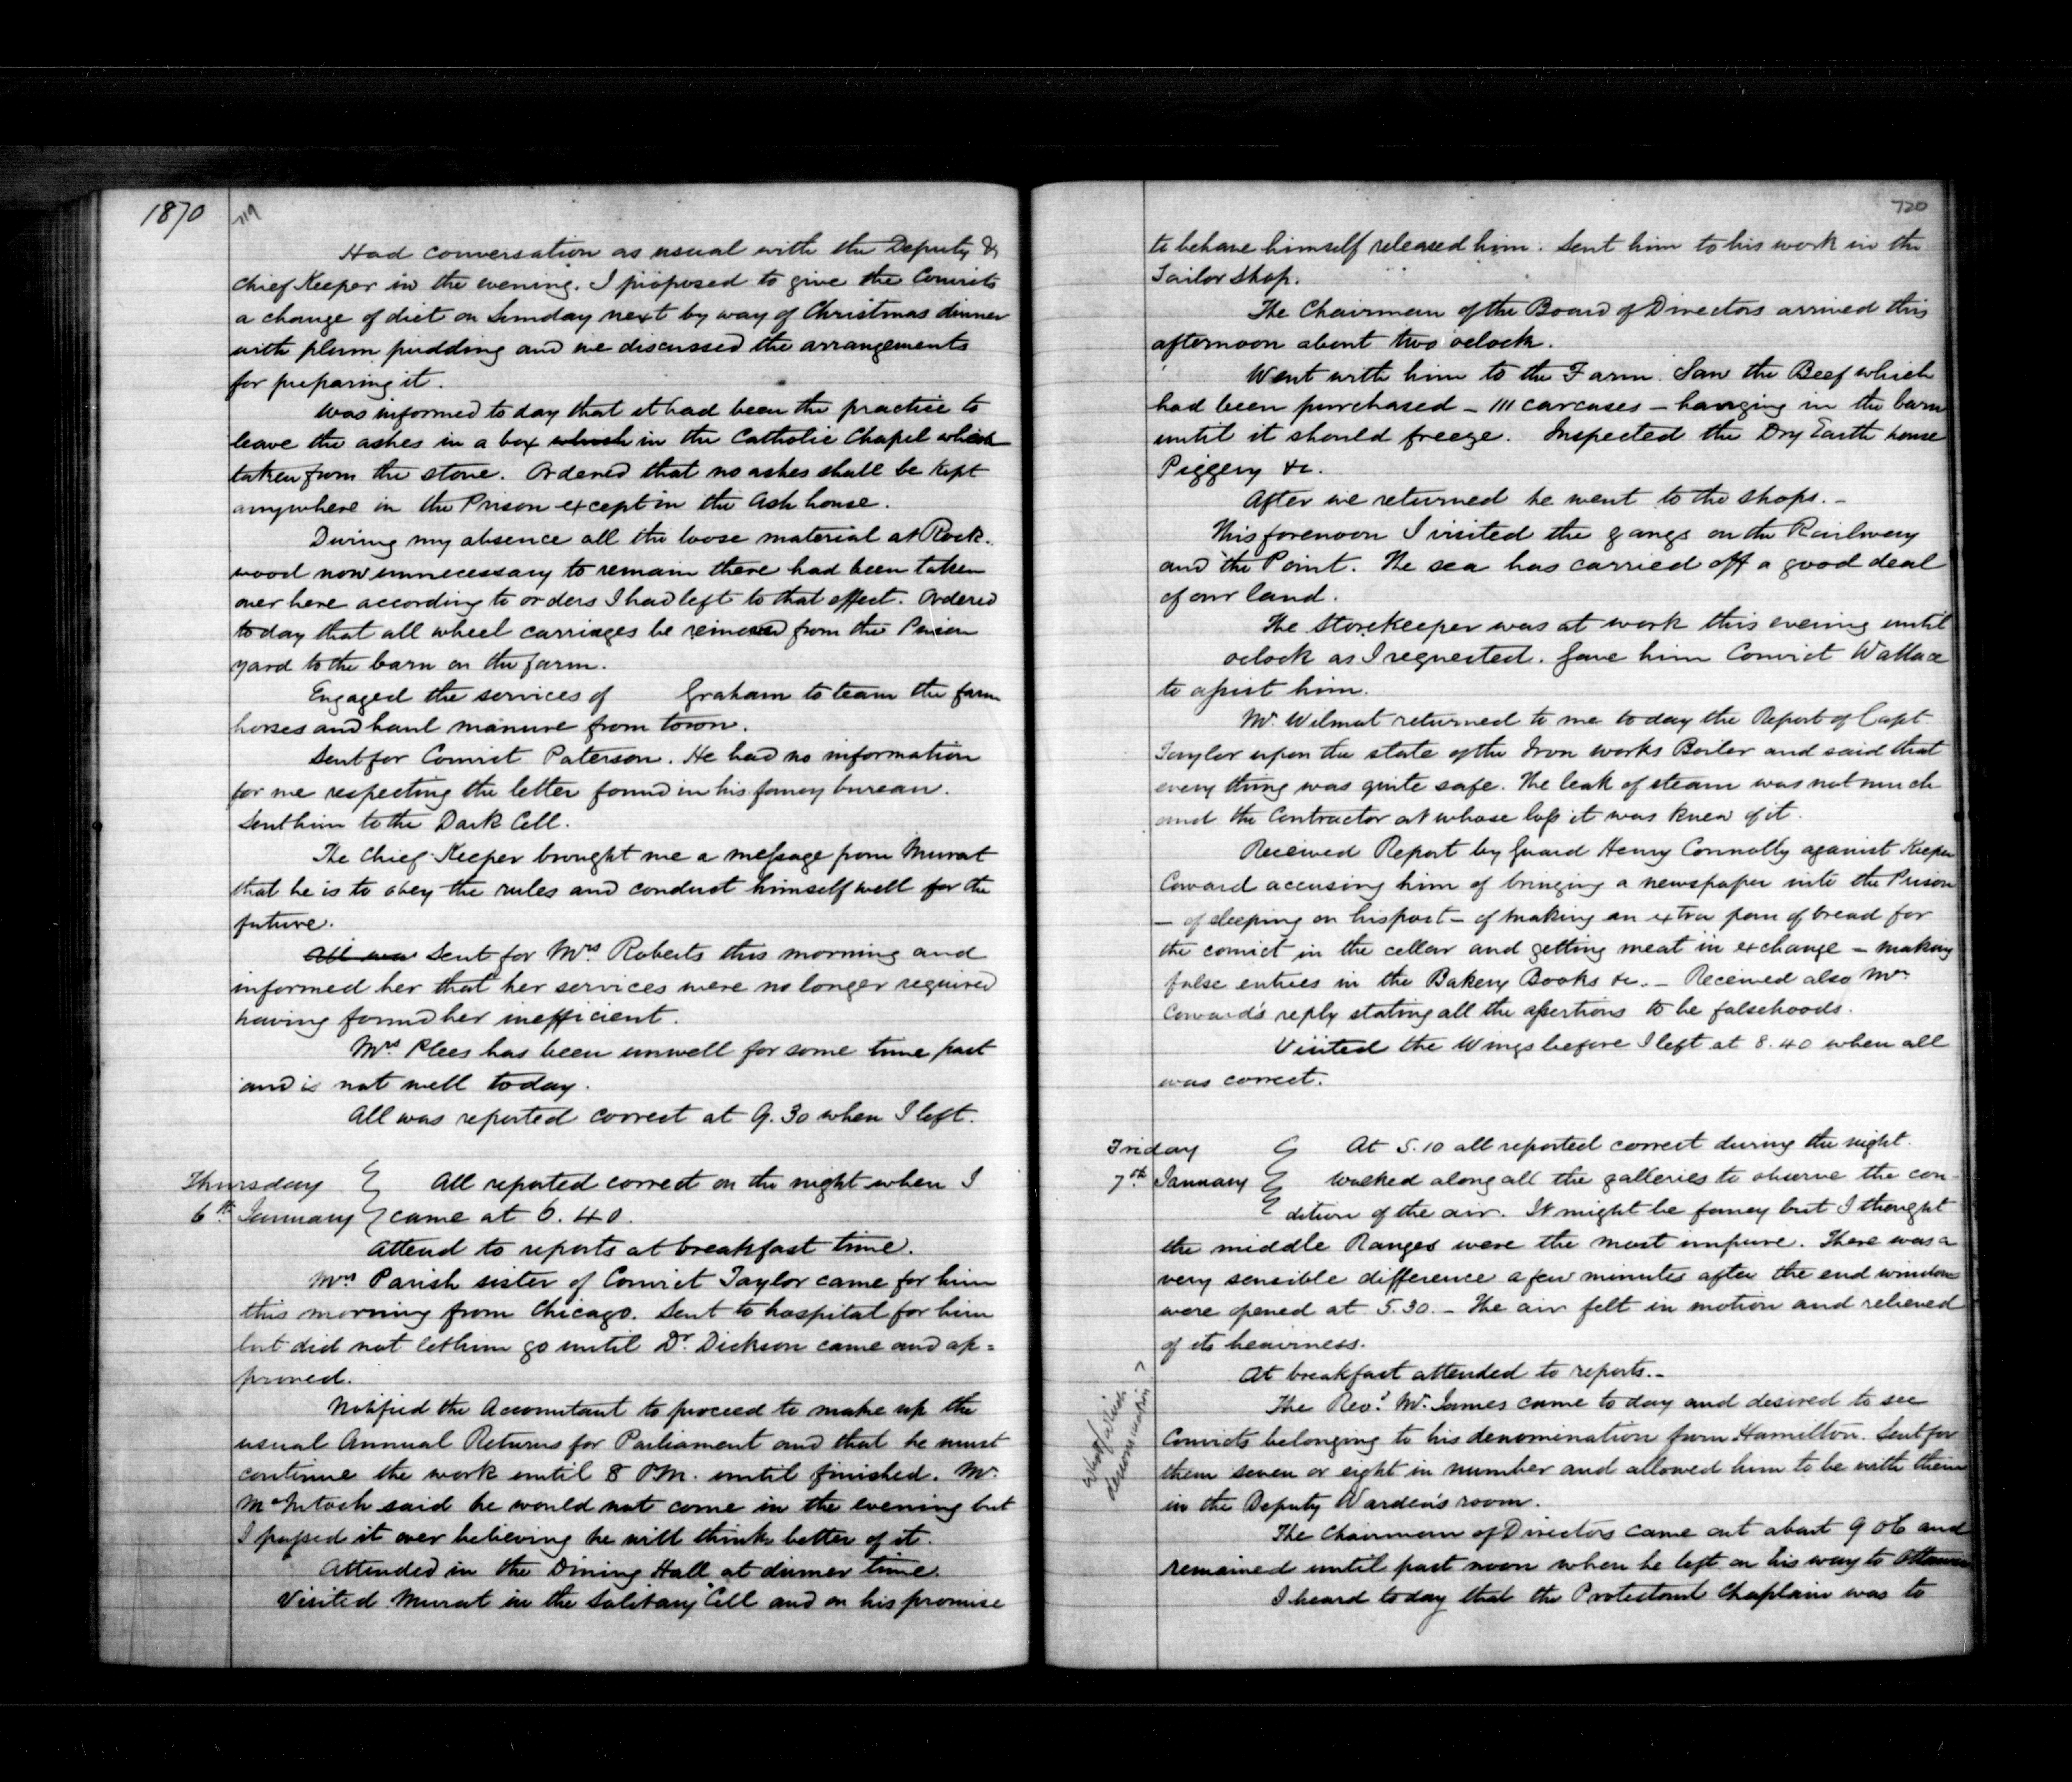 1870
719
Had conversation as usual with the Deputy &
Chief Keeper in the evening. I proposed to give the Convicts
a change of diet on Sunday next by way of Christmas dinner
with plum pudding and we discussed the arrangements
for preparing it.
Was informed to day that it had been the practice to
leave the ashes in a box which in the Catholic Chapel which
taken from the stove. Ordered that no ashes shall be kept
anywhere in the Prison except in the Ash house.
During my absence all the loose material at Rock-
wood now unnecessary to remain there had been taken
over here according to orders I had left to that effect. Ordered
to day that all wheel carriages be removed from the Prison
yard to the barn on the farm.
Engaged the services of Graham to team the farm
horses and haul manure from town.
Sent for Convict Paterson. He had no information
for me respecting the letter found in his fancy bureau.
Sent him to the Dark Cell.
The Chief Keeper brought me a message from Murat
that he is to obey the rules and conduct himself well for the
future.
All was Sent for Mrs Roberts this morning and
informed her that her services were no longer required
having found her inefficient.
Mrs Plees has been unwell for some time past
and is not well today.
All was reported correct at 9.30 when I left.
Thursday All reported correct on the night when I
6th January came at 6.40.
Attend to reports at breakfast time.
Mrs Parish sister of Convict Taylor came for him
this morning from Chicago. Sent to hospital for him
but did not let him go until Dr. Dickson came and ap=
proved.
Notified the Accountant to proceed to make up the
usual Annual Returns for Parliament and that he must
continue the work until 8 P.M. until finished. Mr.
McIntosh said he would not come in the evening but
I passed it over believing he will think better of it.
Attended in the Dining Hall at dinner time.
Visited Murat in the Solitary Cell and on his promise
720
to behave himself released him. Sent him to his work in the
Tailor Shop.
The Chairman of the Board of Directors arrived this
afternoon about two oclock.
Went with him to the Farm. Saw the Beef which
had been purchased - 111 carcases - hanging in the barn
until it should freeze. Inspected the Dry Earth house
Piggery &c.
After we returned he went to the shops. -
This forenoon I visited the gangs on the Railway
and the Point. The sea has carried off a good deal
of our land.
The Storekeeper was at work this evening until
oclock as I requested. Gave him Convict Wallace
to assist him.
Mr. Wilmot returned to me to day the Report of Capt
Taylor upon the state of the Iron works Boiler and said that
every thing was quite safe. The leak of steam was not much
and the Contractor at whose loss it was knew of it.
Received Report by Guard Henry Connolly against Keeper
Coward accusing him of bringing a newspaper into the Prison
- of sleeping on his post - of making an extra pan of bread for
the convict in the cellar and getting meat in exchange - making
false entries in the Bakery Books &c. - Received also Mr.
Coward's reply stating all the assertions to be falsehoods.
Visited the Wings before I left at 8.40 when all
was correct.
Friday At 5.10 all reported correct during the night.
7th January Walked along all the galleries to observe the con-
dition of the air. It might be fancy but I thought
the middle Ranges were the most impure. There was a
very sensible difference a few minutes after the end windows
were opened at 5.30. - The air felt in motion and relieved
of its heaviness.
At breakfast attended to reports. -
The Revd. Mr. James came to day and desired to see
Convicts belonging to his denomination from Hamilton. Sent for
them seven or eight in number and allowed him to be with them
in the Deputy Warden's room.
What/which
denomination?
The Chairman of Directors came out about 9 oC and
remained until past noon when he left on his way to Ottawa
I heard to day that the Protestant Chaplain was to